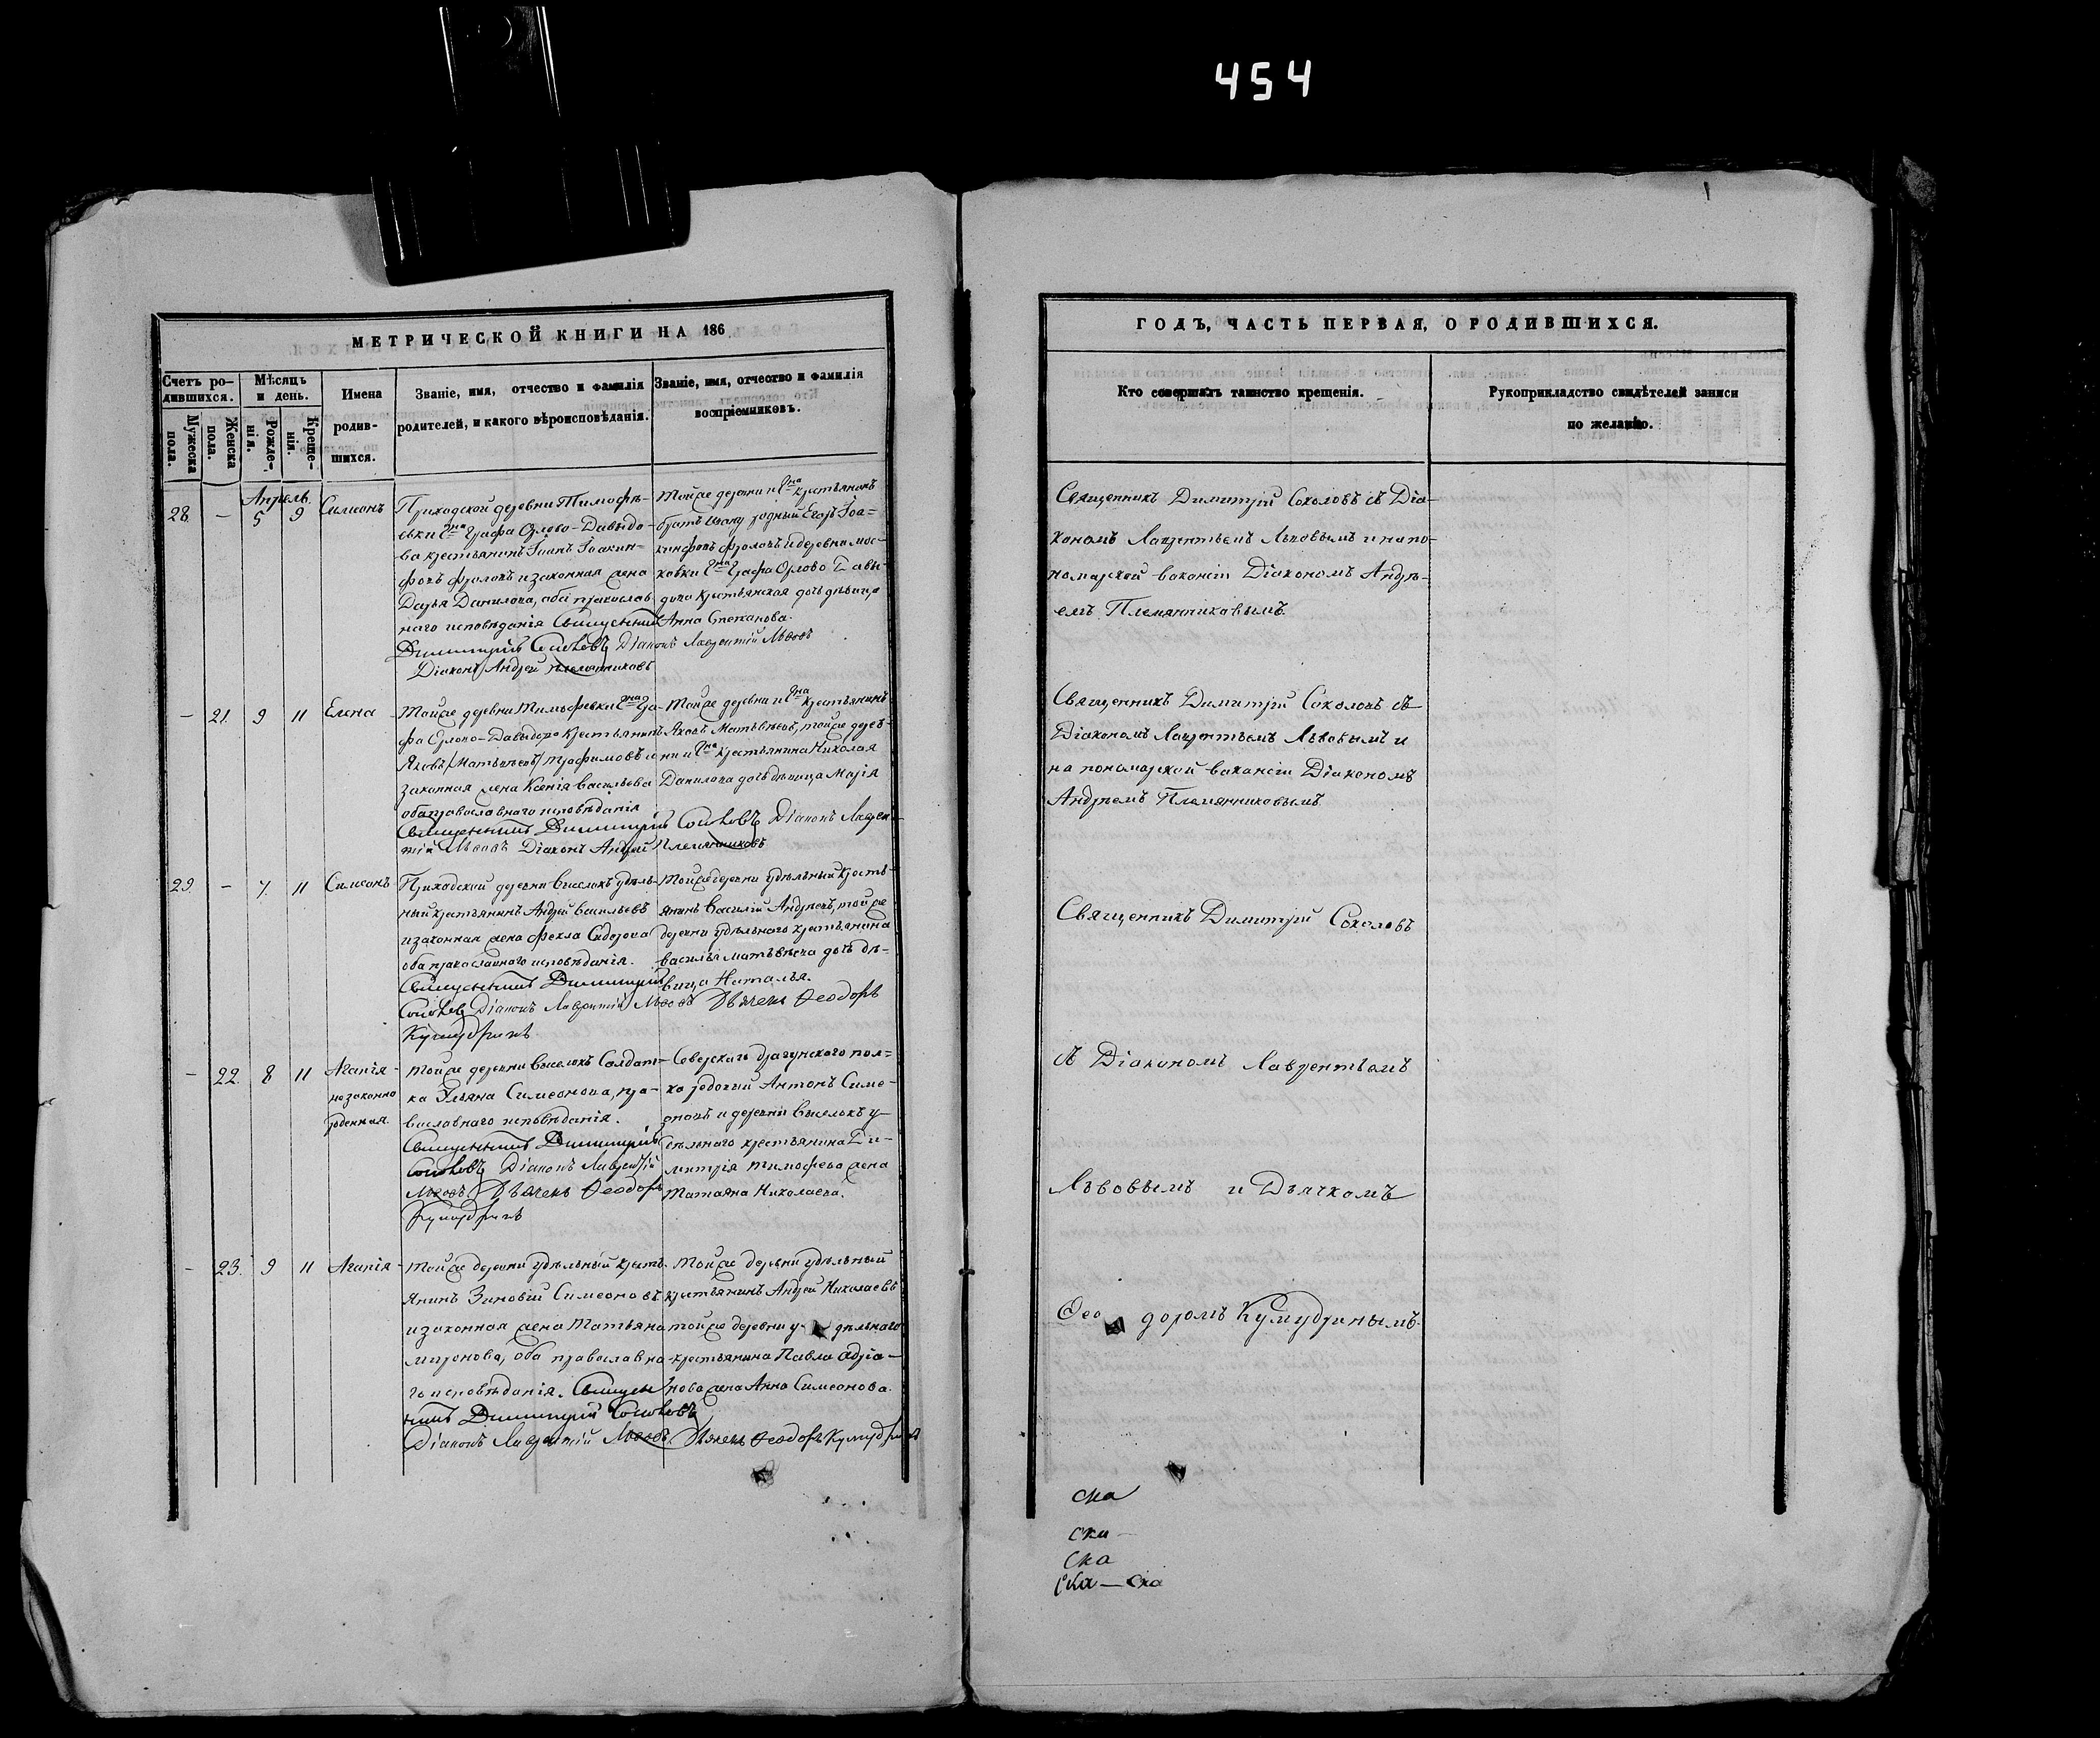 454
МЕТРИЧЕСКОЙ КНИГИ НА 186
Счетъ ро-
дившихся.
Мужеска
пола.
Женска
пола.
Мѣсяцъ
и день.
Рожде-
нія.
Креще-
нія.
Имена
родив-
шихся.
Званіе, имя, отчество и фамилія
родителей, и какого вѣроисповѣданія.
Званіе, имя, отчество и фамилія
воспріемниковъ.
Апрель
28. – 5 9 Симеонъ
Приходской деревни Тимофѣ-
евки Гна Графа Орлово-Давыдо-
ва крестьянинъ Іоанъ Іоакин-
фовъ Фроловъ и законная жена
Дарья Данилова, оба православ
наго исповѣданія Священникъ
Димитрій Соколовъ Діаконъ Лаврентій Львовъ
Діаконъ Андрей Племянниковъ
Тойже деревни и Гна крестьянинъ
братъ Ивану родный Егоръ Іоа-
кинфовъ Фроловъ и деревни Мос-
ковки Гна Графа Орлово Давы-
дова крестьянская дочь дѣвица
Анна Степанова.
– 21. 9 11 Елена
Тойже деревни Тимофѣевки Гна Гра-
фа Орлово-Давыдова крестьянинъ
Яковъ /Матвѣевъ/ Трофимовъ и
законная жена Ксенія Васильева
оба православнаго исповѣданія
Священникъ Димитрій Соколовъ Діаконъ Лаврен-
тій Львовъ Діаконъ Андрей Племянниковъ
Тойже деревни и Гна крестьянинъ
Яковъ Матвѣевъ, тойже дерев-
ни и Гна крестьянина Николая
Данилова дочь дѣвица Марія
29. – 7. 11 Симеонъ
Приходской деревни Выселокъ удѣль-
ный крестьянинъ Андрей Васильевъ
и законная жена Фекла Сидорова
оба православнаго исповѣданія.
Священникъ Димитрій
Соколовъ Діаконъ Лаврентій Львовъ Дьячекъ Феодоръ
Кумудринъ
Тойже деревни удѣльный кресть-
янинъ Василій Андреевъ, тойже
деревни удѣльного крестьянина
Василья Матвѣева дочь дѣ-
вица Наталья.
– 22. 8 11 Агапія-
незаконно
рожденная.
Тойже деревни Выселокъ Солдат-
ка Ульяна Симеонова, пра-
вославнаго исповѣданія.
Священникъ Димитрій
Соколовъ Діаконъ Лаврентій
Львовъ Дьячекъ Феодоръ
Кумудринъ
Северскаго драгунскаго пол-
ка рядовый Антонъ Симе-
оновъ и деревни Выселокъ у-
дѣльнаго крестьянина Ди-
митрія Тимофева жена
Татьяна Николаева.
– 23. 9 11 Агапія-
Тойже деревни удѣльный кресть-
янинъ Зиновій Симеоновъ
и законная жена Татьяна
Миронова, оба православна-
го исповѣданія. Священ
никъ Димитрій Соколовъ
Діаконъ Лаврентій Львовъ. Дьячекъ Феодоръ Кумудринъ
Тойже деревни удѣльный
крестьянинъ Андрей Николаевъ
тойже деревни у- дѣльнаго
крестьянина Павла Адріа-
нова жена Анна Симеонова.
ГОДЪ, ЧАСТЬ ПЕРВАЯ, О РОДИВШИХСЯ.
Кто совершалъ таинство крещенія.
Рукоприкладство свидѣтелей записи
по желанію.
Священникъ Димитрій Соколовъ съ Діа-
кономъ Лаврентьемъ Львовымъ и на по-
номарской вакансіи Діакономъ Андрѣ-
емъ Племянниковымъ.
Священникъ Димитрій Соколовъ съ
Діакономъ Лаврентьемъ Львовымъ и
на пономарской вакансіи Діакономъ
Андрѣемъ Племянниковымъ.
Священникъ Димитрій Соколовъ
съ Діакономъ Лаврентьемъ
Львовымъ и Дьячкомъ
Ѳео дормъ Кумудринымъ.
ска
ска
ска
ска — ска